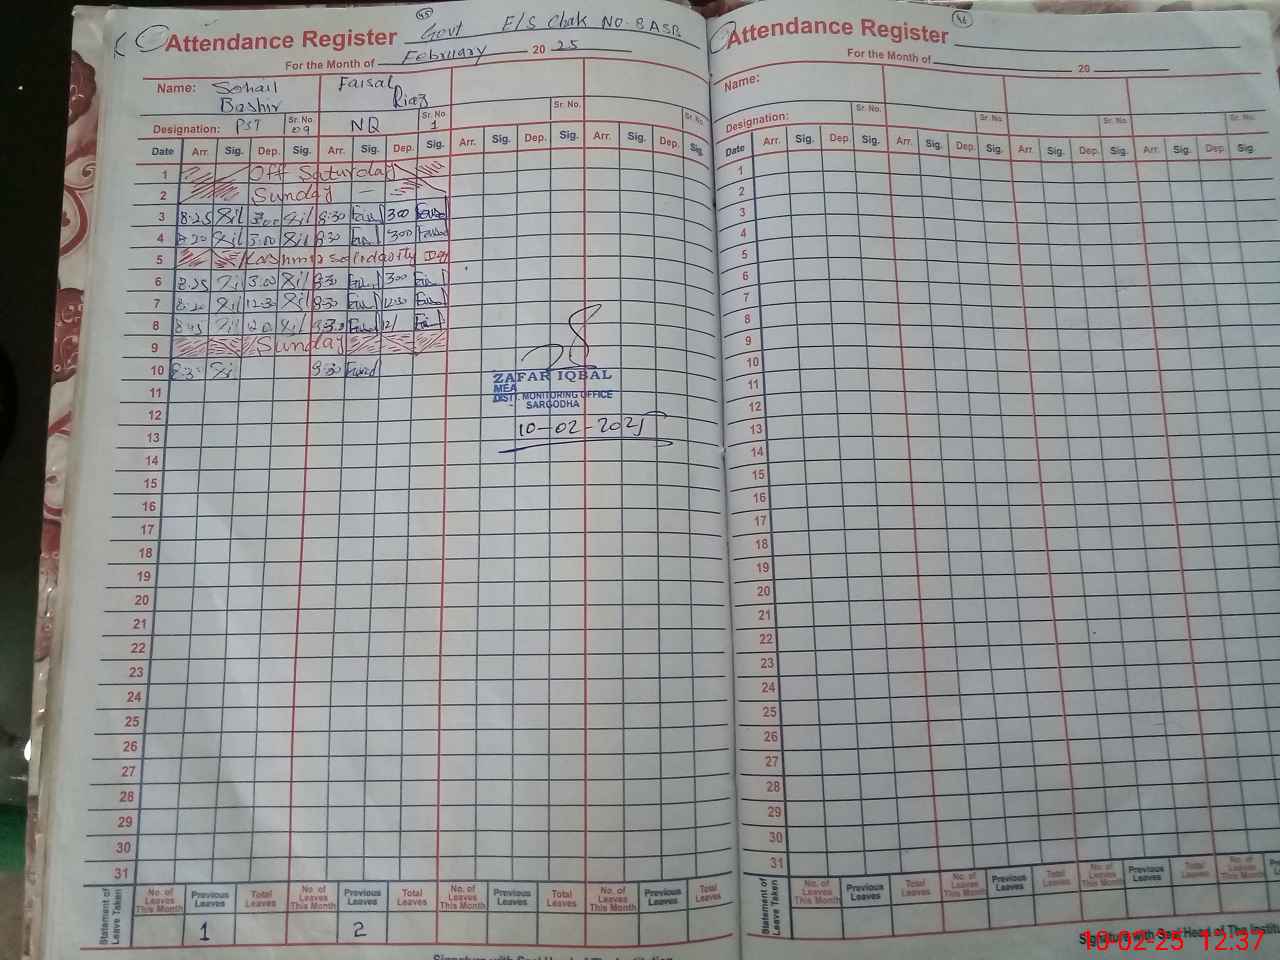 45
Attendance Register Govt E/S Chak No. 8 ASB
For the Month of February 20 25
Name: Sohail Bashir Faisal Riaz
Sr. No. 09 Sr. No. 1 Sr. No. Sr. No.
Designation: PST NQ
Date Arr. Sig. Dep. Sig. Arr. Sig. Dep. Sig. Arr. Sig. Dep. Sig. Arr. Sig. Dep. Sig.
1 Off Saturday
2 Sunday
3 8.25 3.00 8:30 300
4 8.20 3.00 8:30 300
5 Kashmir solidarity Day
6 8.25 3.00 8:30 300
7 8.20 12.30 8:30 12.30
8
9 Sunday
10 8.30 8:30
11
12
13
14
15
16
17
18
19
20
21
22
23
24
25
26
27
28
29
30
31
ZAFAR IQBAL
MEA
DISTT. MONITORING OFFICE
SARGODHA
10-02-2025
Statement of Leave Taken
No. of Leaves This Month Previous Leaves Total Leaves No. of Leaves This Month Previous Leaves Total Leaves No. of Leaves This Month Previous Leaves Total Leaves No. of Leaves This Month Previous Leaves Total Leaves
1 2
Signature with Seal Head of The Institution
46
Attendance Register
For the Month of 20
Name:
Sr. No. Sr. No. Sr. No. Sr. No.
Designation:
Date Arr. Sig. Dep. Sig. Arr. Sig. Dep. Sig. Arr. Sig. Dep. Sig. Arr. Sig. Dep. Sig.
1
2
3
4
5
6
7
8
9
10
11
12
13
14
15
16
17
18
19
20
21
22
23
24
25
26
27
28
29
30
31
Statement of Leave Taken
No. of Leaves This Month Previous Leaves Total Leaves No. of Leaves This Month Previous Leaves Total Leaves No. of Leaves This Month Previous Leaves Total Leaves No. of Leaves
Signature with Seal Head of The Institu
10-02-25 12:37